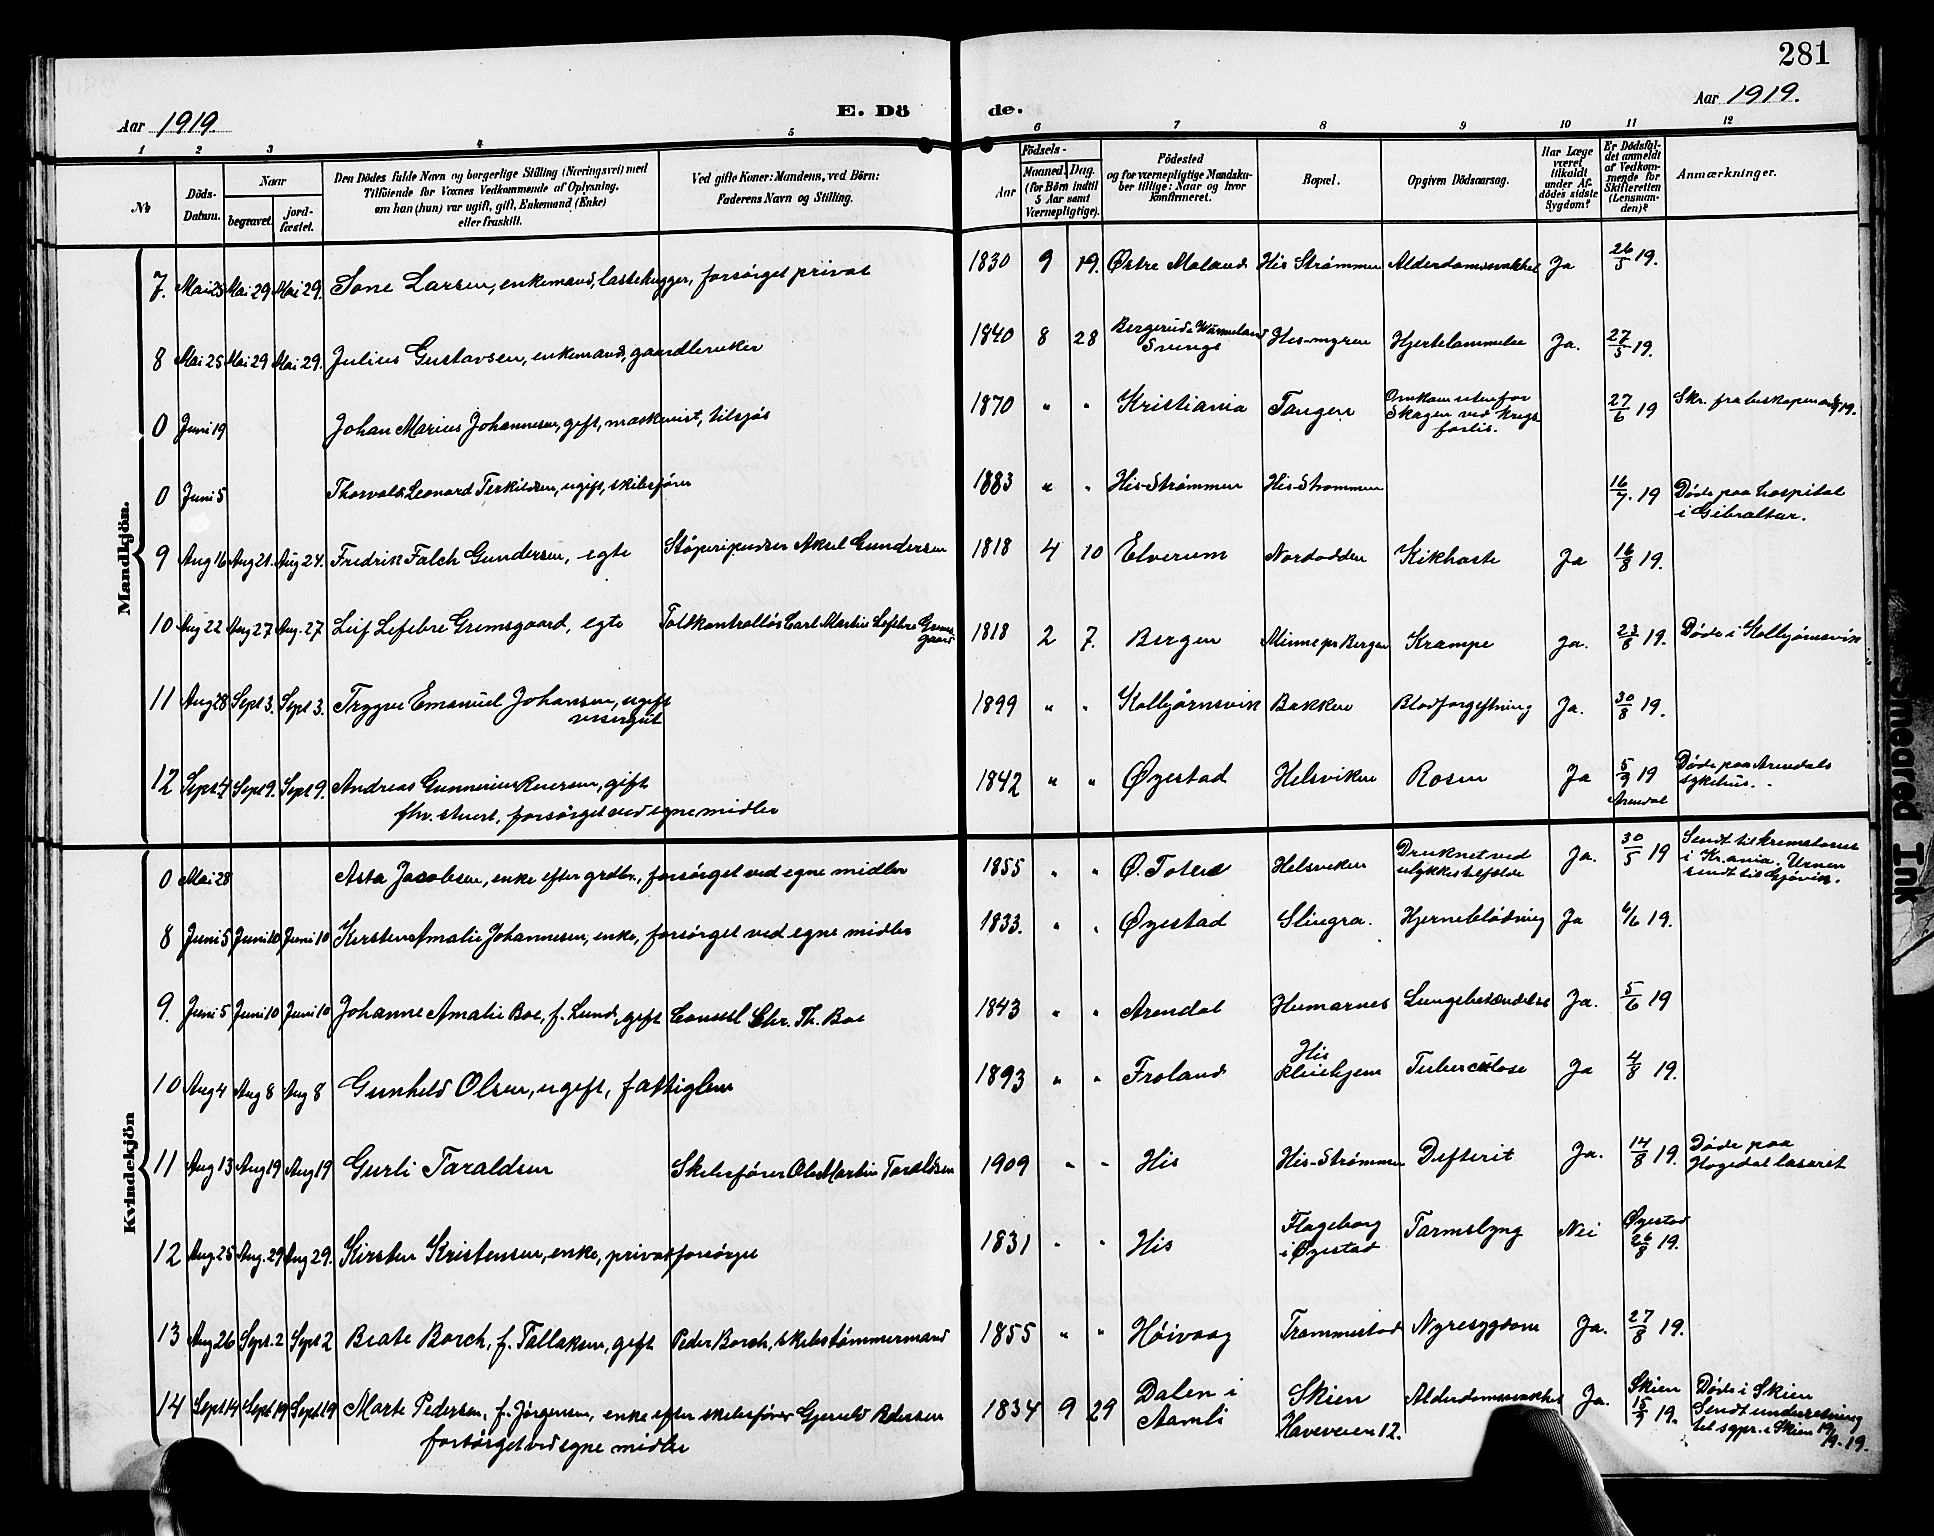 281
Aar 1919.
E. Döde.
Aar 1919.
1 2 3 4 5 6 7 8 9 10 11 12
No
Döds-Datum.
Naar
begravet.
jordfæstet.
Den Dödes fulde Navn og borgerlige Stilling (Næringsvei) med
Tilföiende for Voxnes Vedkommende af Oplysning,
om han (hun) var ugift, gift, Enkemand (Enke)
eller fraskilt.
Ved gifte Koner: Mandens, ved Börn:
Faderens Navn og Stilling.
Födsels-
Aar
Maaned Dag.
(for Börn indtil
5 Aar samt
Værnepligtige).
Födested
og for værnepligtige Mandskaber
tillige: Naar og hvor
konfirmeret.
Bopæl.
Opgiven Dödsaarsag.
Har Læge
været
tilkaldt
under Afdödes
sidste
Sygdom?
Er Dödsfaldet
anmeldt
af Vedkommende
for
Skifteretten
(Lensmanden)?
Anmærkninger.
Mandkjön.
7. Mai 25 Mai 29 Mai 29. Tone Larsen, enkemand, lastehugger, forsørget privat 1830 9 19. Østre Moland His Strømmen Alderdomssvakhet Ja 26/5 19.
8 Mai 25 Mai 29 Mai 29. Julius Gustavsen, enkemand, gaardbruker 1840 8 28 Bergerud i Wärmeland
Sverige His-myren Hjertelammelse Ja. 27/5 19.
0 Juni 19 Johan Marius Johannesen, gift, maskinist, tilsjøs 1870 " " Kristiania Tangen Omkom utenfor
Skagen ved krigsforlis. 27/6 19 Skr. fra biskopen
0 Juni 5 Thorvald Leonard Terkildsen, ugift, skibsfører 1883 " " His-Strømmen His-Strømmen 16/7. 19 Døde paa hospital
i Gibraltar.
9 Aug 16 Aug 21. Aug 24. Fredrik Falch Gundersen, egte Støperipudser Aksel Gundersen 1818 4 10 Elverum Nordodden Kikhoste Ja 16/8 19.
10 Aug 22 Aug 27 Aug. 27 Leif Lefebre Grimsgaard, egte Toldkontrollør Carl Martin Lefebre Grimsgaard 1818 2 7. Bergen Minne pr Bergen Krampe Ja. 23/8 19. Døde i Kolbjørnsvik
11 Aug 28 Sept 3. Sept 3. Trygve Emanuel Johansen, ugift
visergut 1899 " " Kolbjørnsvik Bakken Blodforgiftning Ja. 30/8 19.
12 Sept 4 Sept 9. Sept 9. Andreas Gunnerius Reiersen, gift
fhv. stuert, forsørget ved egne midler 1842 " " Øyestad Helsviken Rosen Ja 5/9 19
Arendal Døde paa Arendals
sykehus.
Kvindekjön
0 Mai 28 Asta Jacobsen, enke efter grdbr., forsørget ved egne midler 1855 " " Ø. Toten Helsviken Druknet ved
ulykkestilfelde Ja. 30/5 19 Sendt til krematoriet
i Kr.ania. Urnen
sendt til Gjøvik.
8 Juni 5 Juni 10 Juni 10 Kirsten Amalie Johannesen, enke, forsørget ved egne midler 1833. " " Øyestad Slingra. Hjerneblødning Ja 6/6 19.
9. Juni 5 Juni 10 Juni 10 Johanne Amalie Boe, f. Lund, gift Consul Chr. Th. Boe 1843 " " Arendal Humarnes Lungebetændelse Ja. 5/6 19
10 Aug 4 Aug 8 Aug 8 Gunhild Olsen, ugift, fattiglem 1893 " " Froland His
pleiehjem Tuberculose Ja 4/8 19.
11 Aug 13 Aug 19 Aug 19 Gurli Taraldsen Skibsfører Ole Martin Taraldsen 1909 " " His His-Strømmen Difterit Ja. 14/8 19. Døde paa
Hogedal lasaret
12 Aug 25 Aug. 29 Aug 29. Kirsten Kristensen, enke, privat forsørget 1831 " " His Flageborg
i Øyestad Tarmslyng Nei Øyestad
26/8 19.
13 Aug 26 Sept. 2 Sept 2 Beate Borch, f. Tallaksen, gift Peder Borch, skibstømmermand 1855 " " Høivaag Trommestad Nyresygdom Ja. 27/8 19.
14 Sept 14 Sept 19 Sept 19 Marte Pedersen, f. Jørgensen, enke efter skibsfører Gjeruld Pedersen
forsørget ved egne midler 1834 9 29 Dalen i
Aamli Skien
Haveveien 12. Alderdomssvakhet Ja. Skien
15/9 19. Døde i Skien
Sendt underretning
til sgpr. i Skien 19/9-19.
Smeared Ink